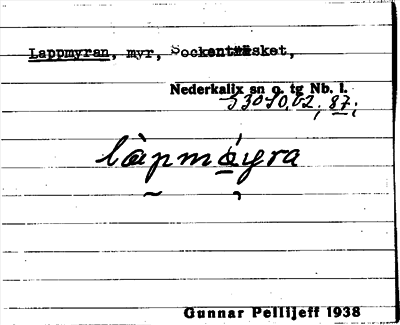 Lappmyran, myr, Sockenträsket,
Nederkalix sn o. tg Nb. l.
33090,02; 87;
làpmǫ́yra
Gunnar Pellijeff 1938